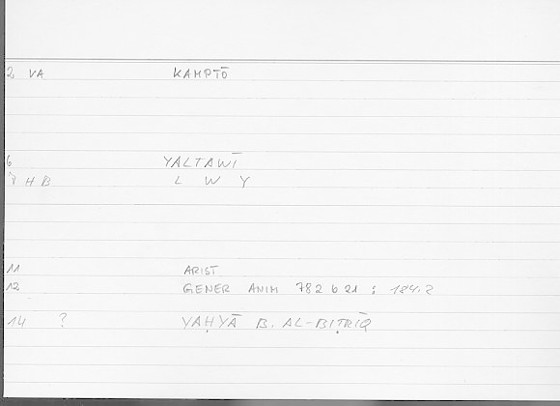 2 VA KAMPTŌ
6 YALTAWĪ
8 H B L W Y
11 ARIST
12 GENER ANIM 782 b 21 : 184.2
14 ? YAḤYĀ B. AL-BIṬRĪQ